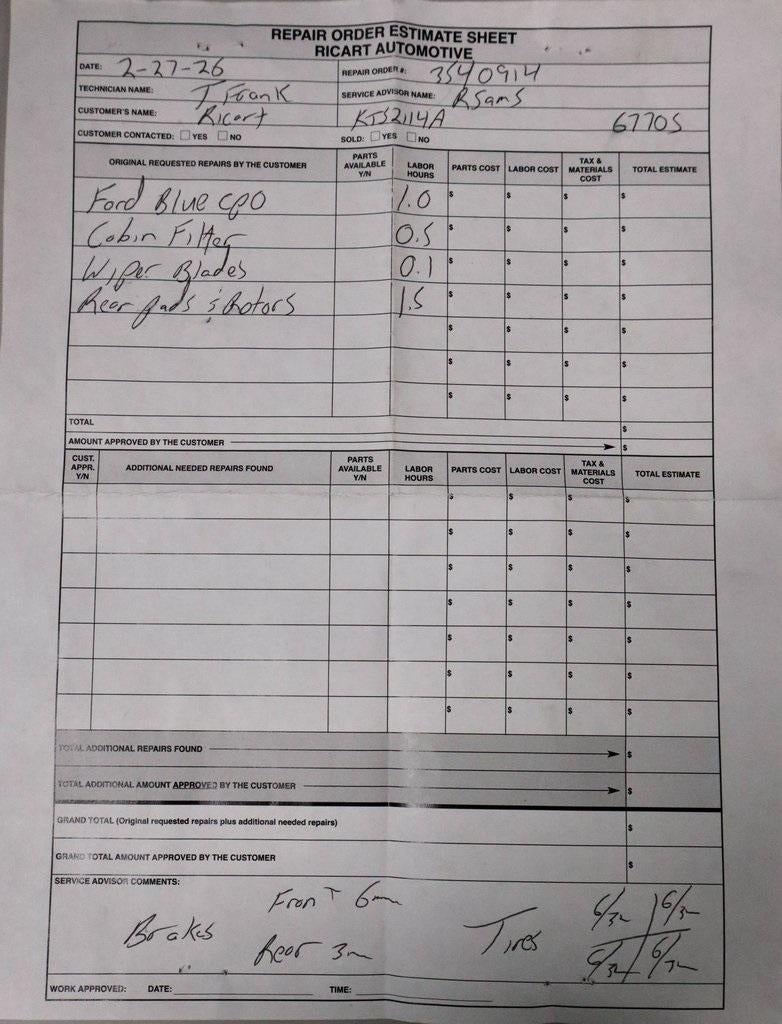 REPAIR ORDER ESTIMATE SHEET
RICART AUTOMOTIVE
DATE: 2-27-26 REPAIR ORDER #: 3540914
TECHNICIAN NAME: T Frank SERVICE ADVISOR NAME: RSams
CUSTOMER'S NAME: Ricart KTS2114A 67705
CUSTOMER CONTACTED: YES NO SOLD: YES NO
ORIGINAL REQUESTED REPAIRS BY THE CUSTOMER PARTS AVAILABLE Y/N LABOR HOURS PARTS COST LABOR COST TAX & MATERIALS COST TOTAL ESTIMATE
Ford Blue CPO 1.0 $ $ $ $
Cabin Filter 0.5 $ $ $ $
Wiper Blades 0.1 $ $ $ $
Rear pads & Rotors 1.5 $ $ $ $
$ $ $ $
$ $ $ $
$ $ $ $
TOTAL $
AMOUNT APPROVED BY THE CUSTOMER $
CUST. APPR. Y/N ADDITIONAL NEEDED REPAIRS FOUND PARTS AVAILABLE Y/N LABOR HOURS PARTS COST LABOR COST TAX & MATERIALS COST TOTAL ESTIMATE
$ $ $ $
$ $ $ $
$ $ $ $
$ $ $ $
$ $ $ $
$ $ $ $
$ $ $ $
TOTAL ADDITIONAL REPAIRS FOUND $
TOTAL ADDITIONAL AMOUNT APPROVED BY THE CUSTOMER $
GRAND TOTAL (Original requested repairs plus additional needed repairs) $
GRAND TOTAL AMOUNT APPROVED BY THE CUSTOMER $
SERVICE ADVISOR COMMENTS:
Front 6mm 6/32 6/32
Brakes Tires
Rear 3mm 6/32 6/32
WORK APPROVED: DATE: TIME: